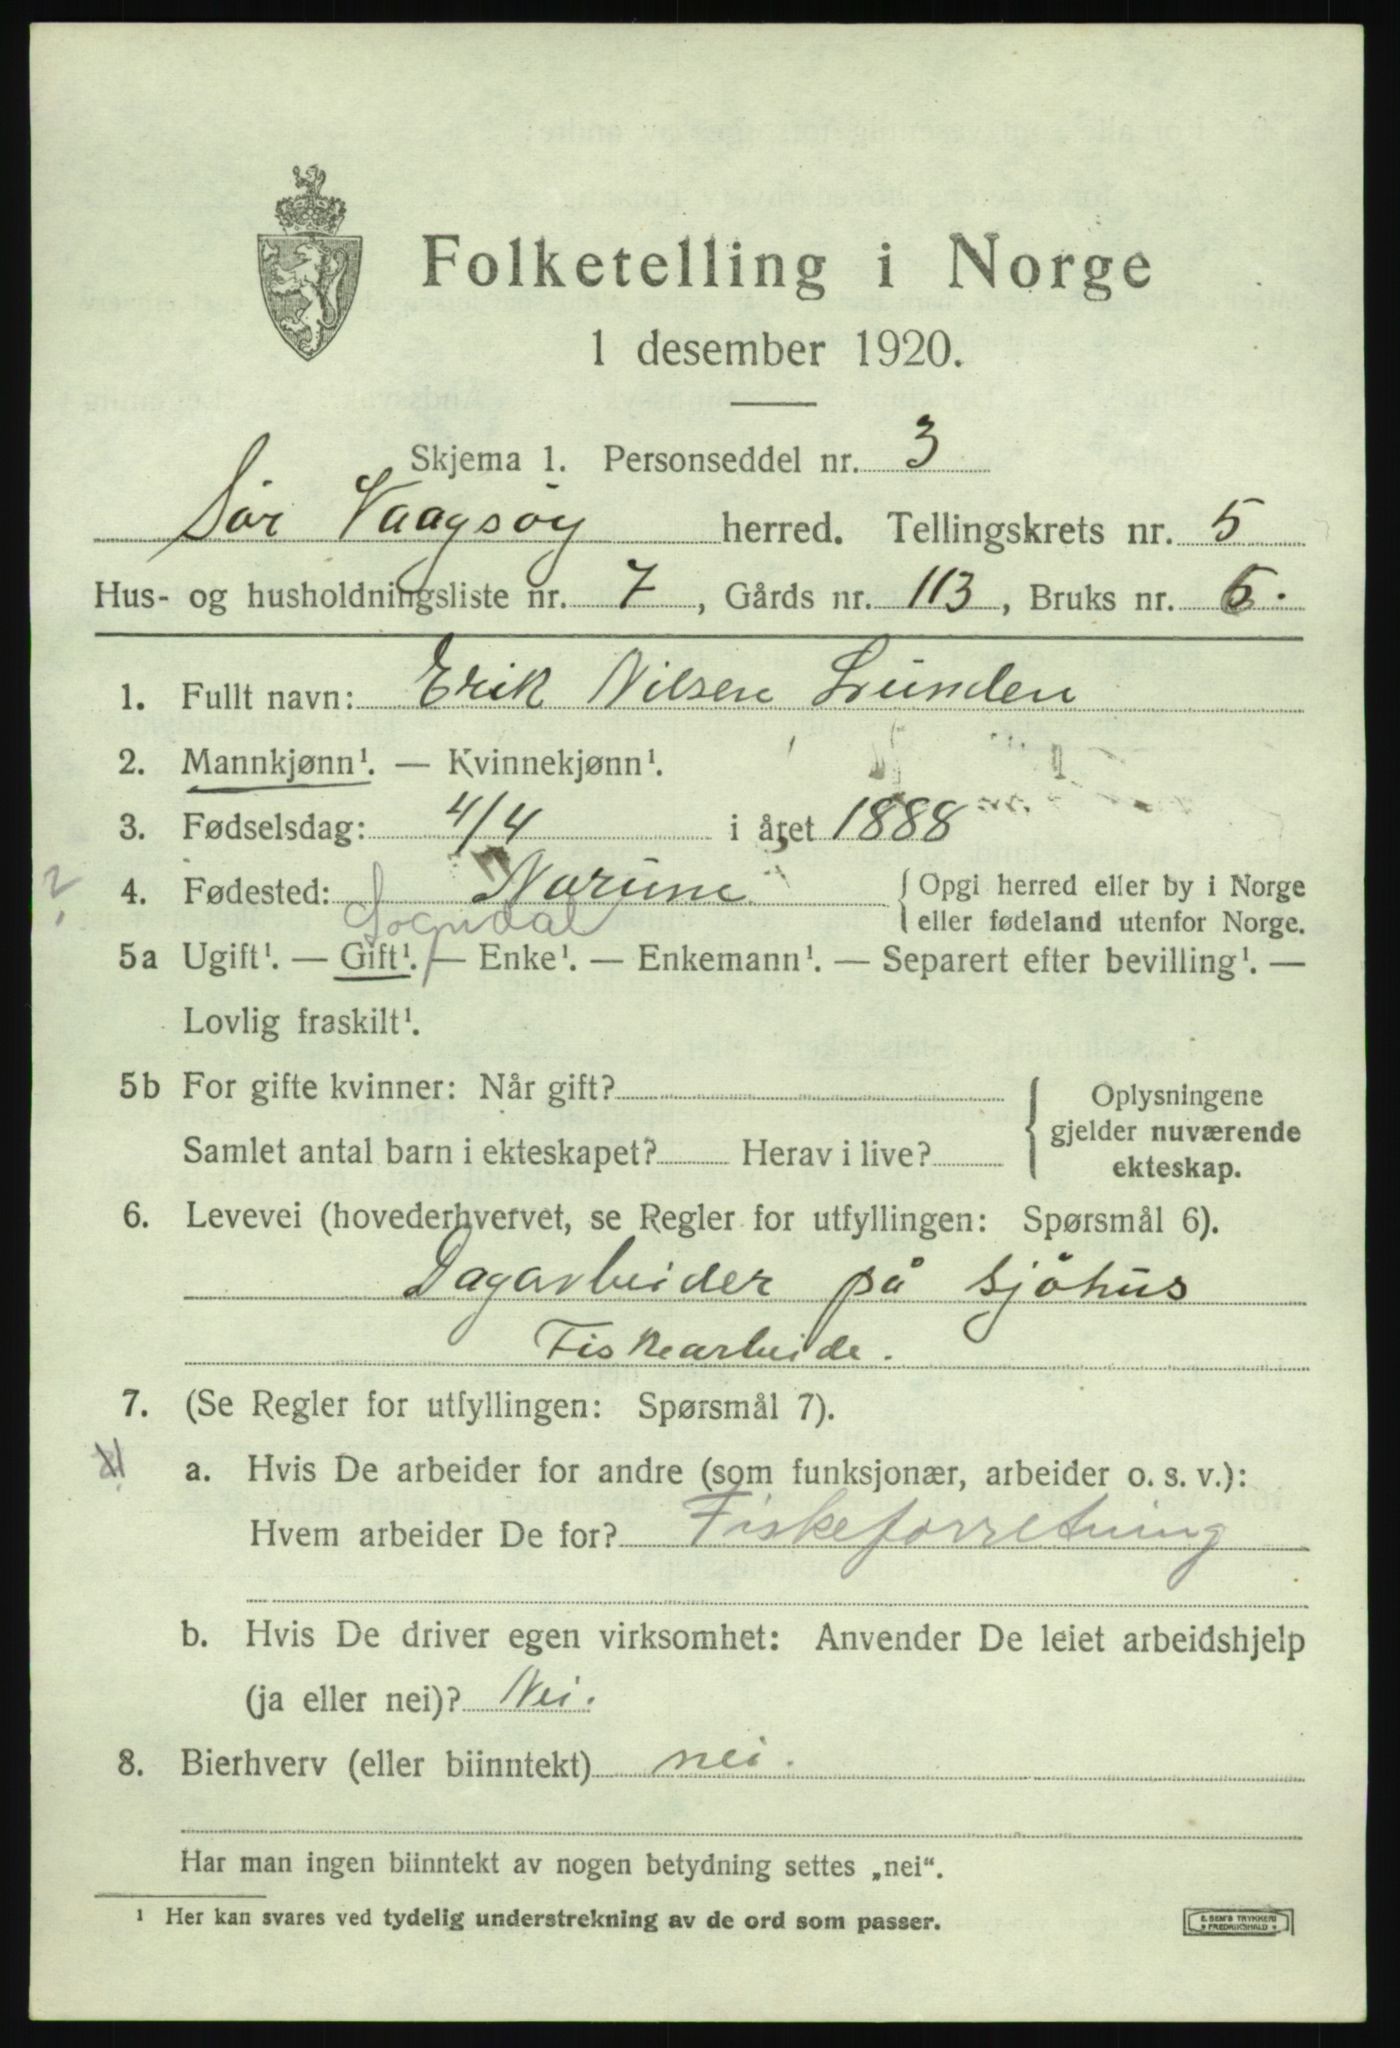 Folketelling i Norge
1 desember 1920.
Skjema 1. Personseddel nr. 3
Sör Vaagsöy herred. Tellingskrets nr. 5
Hus- og husholdningsliste nr. 7, Gårds nr. 113, Bruks nr. 6.
1. Fullt navn: Erik Nilsen Lunden
2. Mannkjønn¹. — Kvinnekjønn¹.
3. Fødselsdag: 4/4 i året 1888
? 4. Fødested: Norum { Opgi herred eller by i Norge
eller fødeland utenfor Norge.
Sogndal
5a Ugift¹. — Gift¹. — Enke¹. — Enkemann¹. — Separert efter bevilling¹. —
Lovlig fraskilt¹.
5b For gifte kvinner: Når gift?
Samlet antal barn i ekteskapet? Herav i live?
{ Oplysningene
gjelder nuværende
ekteskap.
6. Levevei (hovederhvervet, se Regler for utfyllingen: Spørsmål 6).
Dagarbeider på sjöhus
Fiskearbeide.
7. (Se Regler for utfyllingen: Spørsmål 7).
a. Hvis De arbeider for andre (som funksjonær, arbeider o. s. v.):
Hvem arbeider De for? Fiskeforretning
b. Hvis De driver egen virksomhet: Anvender De leiet arbeidshjelp
(ja eller nei)? Nei.
8. Bierhverv (eller biinntekt) nei.
Har man ingen biinntekt av nogen betydning settes „nei“.
¹ Her kan svares ved tydelig understrekning av de ord som passer.
E. SEM'S TRYKKERI
FREDRIKSHALD